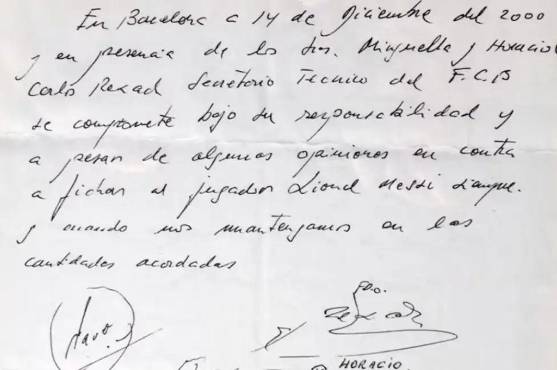 En Barcelona a 14 de Diciembre del 2000
y en presencia de los Srs. Minguella y Horacio
Carlos Rexach Secretario Técnico del F.C.B
se compromete bajo su responsabilidad y
a pesar de algunas opiniones en contra
a fichar al jugador Lionel Messi siempre
y cuando nos mantengamos en las
cantidades acordadas
Fdo.
HORACIO